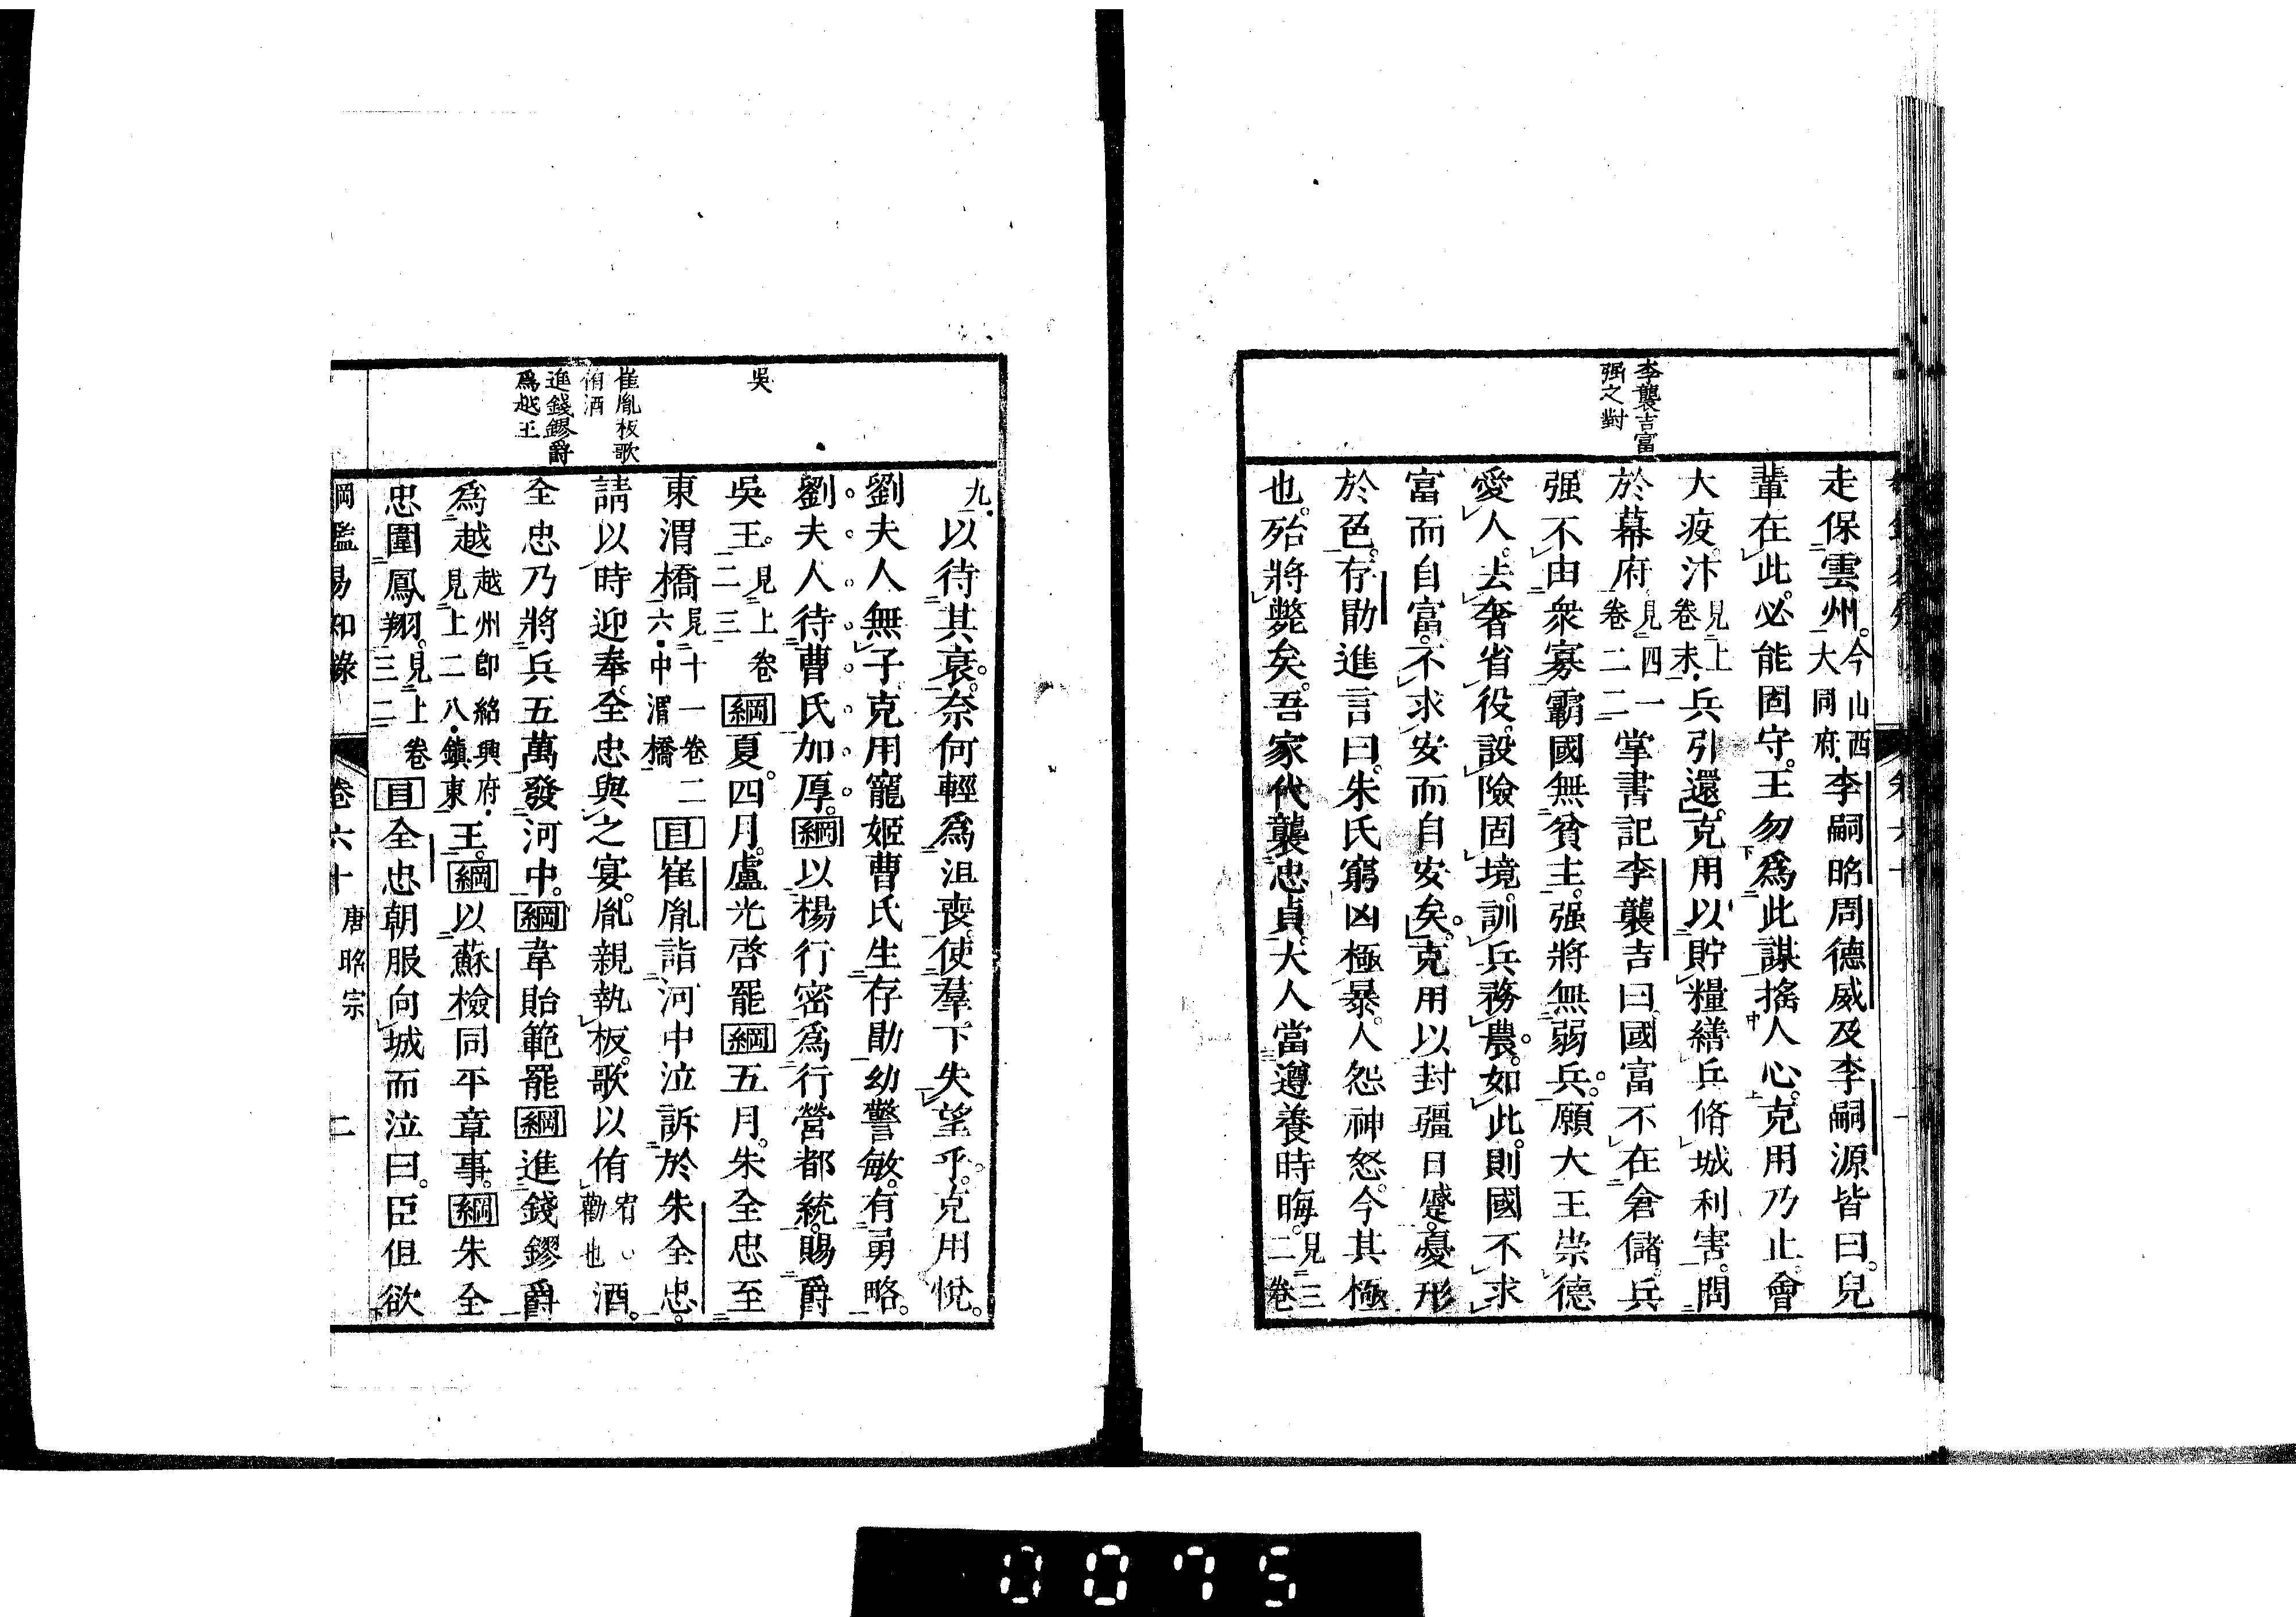 李襲吉富
强之對
走保雲州。今山西大同府。李嗣昭周德威及李嗣源皆曰。兒
輩在此。必能固守。王勿爲此謀搖人心。克用乃止。會
大疫。汴見上卷末。兵引還。克用以貯糧繕兵脩城利害。問
於幕府見四一卷二二掌書記李襲吉曰。國富不在倉儲。兵
强不由衆寡。霸國無貧主。强將無弱兵。願大王崇德
愛人。去奢省役。設險固境。訓兵務農。如此。則國不求
富而自富。不求安而自安矣。克用以封疆日蹙。憂形
於色。存勖進言曰。朱氏窮凶極暴。人怨神怒。今其極
也。殆將斃矣。吾家代襲忠貞。大人當遵養時晦。見三二卷
吳
崔胤板歌
侑酒
進錢鏐爵
爲越王
九。以待其衰。奈何輕爲沮喪。使羣下失望乎。克用悅。
劉夫人無子。克用寵姬曹氏生存勖。幼警敏。有勇略。
劉夫人待曹氏加厚。綱以楊行密爲行營都統。賜爵
吳王。見上卷二三綱夏。四月。盧光啓罷綱五月。朱全忠至
東渭橋見十一卷二六。中渭橋目崔胤詣河中泣訴於朱全忠。
請以時迎奉。全忠與之宴。胤親執板。歌以侑宥、勸也酒。
全忠乃將兵五萬發河中。綱韋貽範罷綱進錢鏐爵
爲越越州卽紹興府。見上二八。鎭東王。綱以蘇檢同平章事。綱朱全
忠圍鳳翔。見上卷三二目全忠朝服向城而泣曰。臣但欲
綱鑑易知錄 卷六十 唐昭宗 二
0075